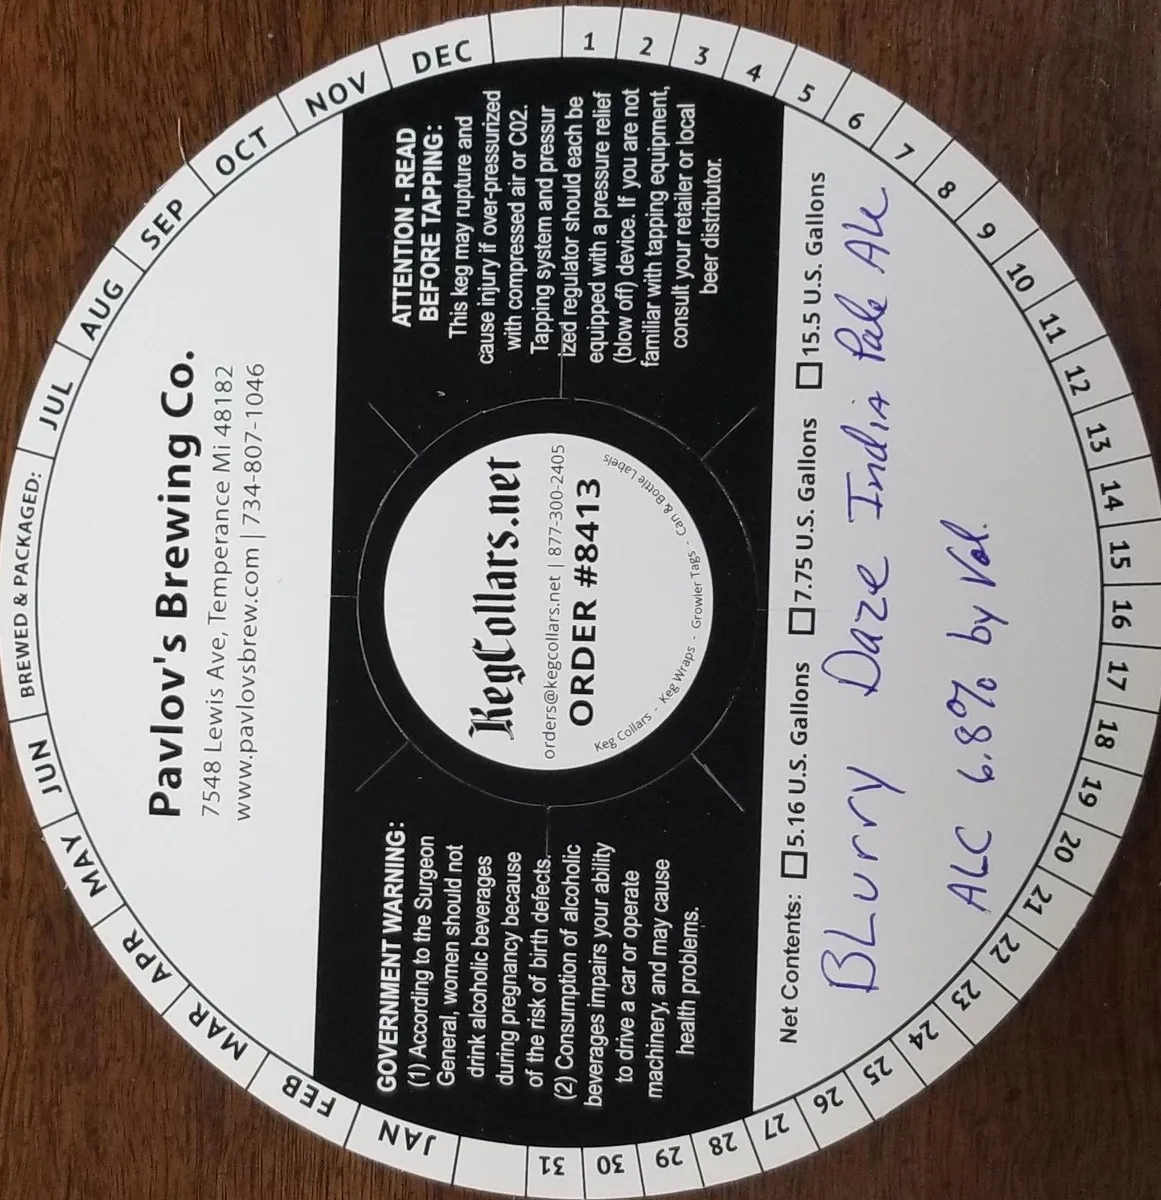 BREWED & PACKAGED:
JAN FEB MAR APR MAY JUN JUL AUG SEP OCT NOV DEC
Pavlov's Brewing Co.
7548 Lewis Ave, Temperance Mi 48182
www.pavlovsbrew.com | 734-807-1046
GOVERNMENT WARNING:
(1) According to the Surgeon
General, women should not
drink alcoholic beverages
during pregnancy because
of the risk of birth defects.
(2) Consumption of alcoholic
beverages impairs your ability
to drive a car or operate
machinery, and may cause
health problems.
KegCollars.net
orders@kegcollars.net | 877-300-2405
ORDER #8413
Keg Collars - Keg Wraps - Growler Tags - Can & Bottle Labels
ATTENTION - READ
BEFORE TAPPING:
This keg may rupture and
cause injury if over-pressurized
with compressed air or C02.
Tapping system and pressur
ized regulator should each be
equipped with a pressure relief
(blow off) device. If you are not
familiar with tapping equipment,
consult your retailer or local
beer distributor.
Net Contents: 5.16 U.S. Gallons 7.75 U.S. Gallons 15.5 U.S. Gallons
BLurry Daze India Pale Ale
ALC 6.8% by Vol.
1 2 3 4 5 6 7 8 9 10 11 12 13 14 15 16 17 18 19 20 21 22 23 24 25 26 27 28 29 30 31